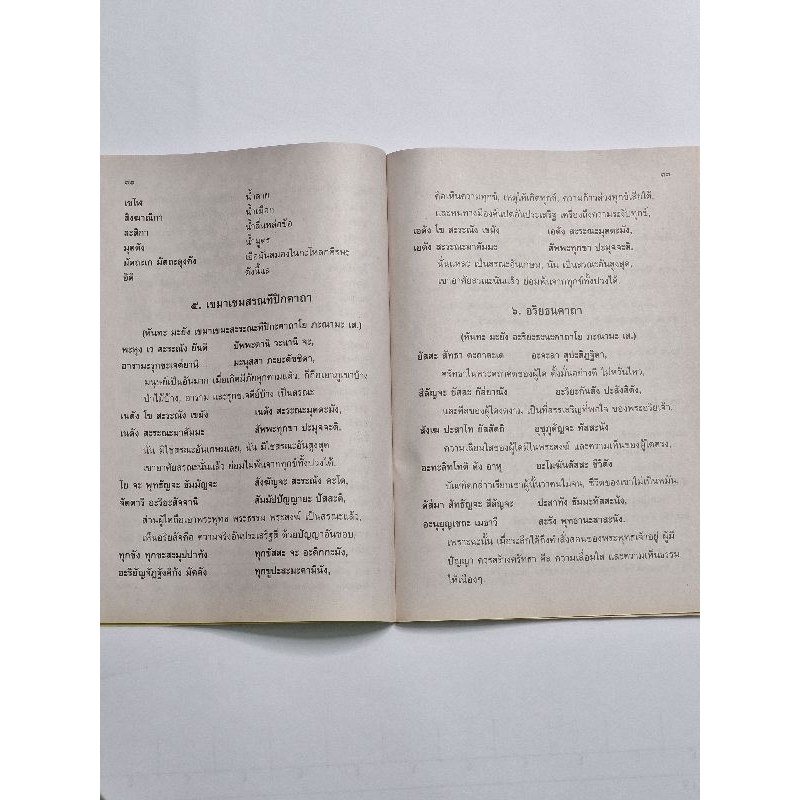 ๓๒
เขโฬ น้ำลาย
สิงฆาณิกา น้ำมูก
ละสิกา น้ำลื่นหล่อข้อ
มุตตัง น้ำมูตร
มัตถะเก มัตถะลุงคัง เยื่อมันสมองในกะโหลกศีรษะ
อิติ ดังนี้แล
๕. เขมาเขมสรณทีปิกคาถา
(หันทะ มะยัง เขมาเขมะสะระณะทีปิกะคาถาโย ภะณามะ เส.)
พะหุง เว สะระณัง ยันติ ปัพพะตานิ วะนานิ จะ,
อารามะรุกขะเจตยานิ มะนุสสา ภะยะตัชชิตา,
มนุษย์เป็นอันมาก เมื่อเกิดมีภัยคุกคามแล้ว, ก็ถือเอาภูเขาบ้าง
ป่าไม้บ้าง, อาราม และรุกขเจดีย์บ้าง เป็นสรณะ
เนตัง โข สะระณัง เขมัง เนตัง สะระณะมุตตะมัง,
เนตัง สะระณะมาคัมมะ สัพพะทุกขา ปะมุจจะติ,
นั่น มิใช่สรณะอันเกษมเลย, นั่น มิใช่สรณะอันสูงสุด,
เขาอาศัยสรณะนั่นแล้ว ย่อมไม่พ้นจากทุกข์ทั้งปวงได้.
โย จะ พุทธัญจะ ธัมมัญจะ สังฆัญจะ สะระณัง คะโต,
จัตตาริ อะริยะสัจจานิ สัมมัปปัญญายะ ปัสสะติ,
ส่วนผู้ใดถือเอาพระพุทธ พระธรรม พระสงฆ์ เป็นสรณะแล้ว,
เห็นอริยสัจคือ ความจริงอันประเสริฐสี่ ด้วยปัญญาอันชอบ,
ทุกขัง ทุกขะสะมุปปาทัง ทุกขัสสะ จะ อะติกกะมัง,
อะริยัญจัฏฐังคิกัง มัคคัง ทุกขูปะสะมะคามินัง,
๓๓
คือเห็นความทุกข์, เหตุให้เกิดทุกข์, ความก้าวล่วงทุกข์เสียได้,
และหนทางมีองค์แปดอันประเสริฐ เครื่องถึงความระงับทุกข์,
เอตัง โข สะระณัง เขมัง เอตัง สะระณะมุตตะมัง,
เอตัง สะระณะมาคัมมะ สัพพะทุกขา ปะมุจจะติ.
นั่นแหละ เป็นสรณะอันเกษม, นั่น เป็นสรณะอันสูงสุด,
เขาอาศัยสรณะนั่นแล้ว ย่อมพ้นจากทุกข์ทั้งปวงได้.
๖. อริยธนคาถา
(หันทะ มะยัง อะริยะธะนะคาถาโย ภะณามะ เส.)
ยัสสะ สัทธา ตะถาคะเต อะจะลา สุปะติฏฐิตา,
ศรัทธาในพระตถาคตของผู้ใด ตั้งมั่นอย่างดี ไม่หวั่นไหว,
สีลัญจะ ยัสสะ กัล๎ยาณัง อะริยะกันตัง ปะสังสิตัง,
และศีลของผู้ใดงดงาม, เป็นที่สรรเสริญที่พอใจ ของพระอริยเจ้า,
สังเฆ ปะสาโท ยัสสัตถิ อุชุภูตัญจะ ทัสสะนัง
ความเลื่อมใสของผู้ใดมีในพระสงฆ์ และความเห็นของผู้ใดตรง,
อะทะลิทโทติ ตัง อาหุ อะโมฆันตัสสะ ชีวิตัง
บัณฑิตกล่าวเรียกเขาผู้นั้นว่าคนไม่จน, ชีวิตของเขาไม่เป็นหมัน.
ตัส๎มา สัทธัญจะ สีลัญจะ ปะสาทัง ธัมมะทัสสะนัง,
อะนุยุญเชถะ เมธาวี สะรัง พุทธานะสาสะนัง.
เพราะฉะนั้น เมื่อระลึกได้ถึงคำสั่งสอนของพระพุทธเจ้าอยู่ ผู้มี
ปัญญา ควรสร้างศรัทธา ศีล ความเลื่อมใส และความเห็นธรรม
ให้เนืองๆ.